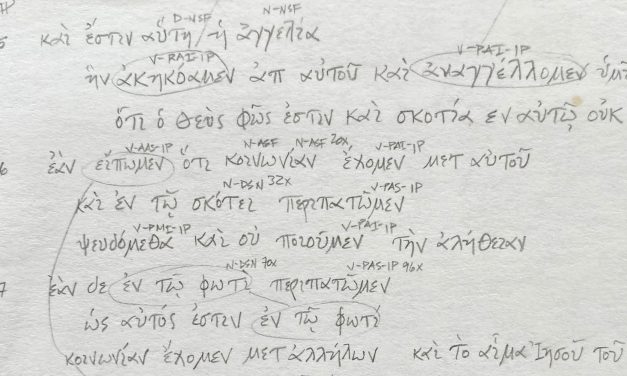 D-NSF N-NSF
5 καὶ ἔστιν αὕτη ἡ ἀγγελία
V-RAI-1P V-PAI-1P
ἣν ἀκηκόαμεν ἀπ αὐτοῦ καὶ ἀναγγέλλομεν ὑμῖ
ὅτι ὁ θεὸς φῶς ἐστιν καὶ σκοτία εν αὐτῷ οὐκ
V-AAS-1P N-ASF N-ASF 20x V-PAI-1P
6 ἐὰν εἴπωμεν ὅτι κοινωνίαν ἔχομεν μετ αὐτοῦ
N-DSN 32x V-PAS-1P
καὶ ἐν τῷ σκότει περιπατῶμεν
V-PMI-1P V-PAI-1P
ψευδόμεθα καὶ οὐ ποιοῦμεν τὴν ἀλήθειαν
N-DSN 70x V-PAS-1P 96x
7 ἐὰν δε ἐν τῷ φωτὶ περιπατῶμεν
ὡς αὐτός ἐστιν ἐν τῷ φωτί
κοινωνίαν ἔχομεν μετ ἀλλήλων καὶ τὸ αἷμα Ἰησοῦ τοῦ